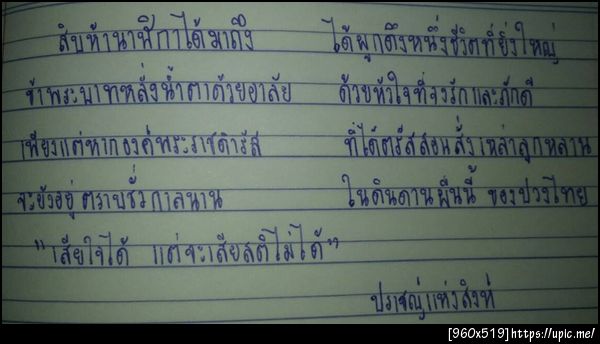 สิบห้านาฬิกาได้มาถึง ได้ผูกดึงหนึ่งชีวิตที่ยิ่งใหญ่
ข้าพระบาทหลั่งน้ำตาด้วยอาลัย ด้วยหัวใจที่จงรักและภักดี
เพียงแต่หากองค์พระราชดำรัส ที่ได้ตรัสสอนสั่งเหล่าลูกหลาน
จะยังอยู่ตราบชั่วกาลนาน ในดินดานผืนนี้ ของปวงไทย
"เสียใจได้ แต่จะเสียสติไม่ได้"
ปราชญ์แห่งสิงห์
[960x519]https://upic.me/